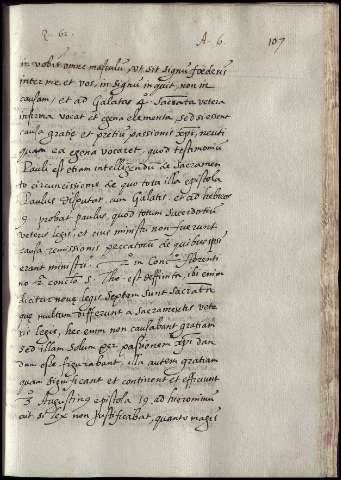 Q. 62. A. 6. 107
in vobis omne masculũ, vt sit signũ fœderis
inter me et vos, in signũ inquit, non in
causam, et ad Galatas 4º. Sacrata vetera
infirma vocat et egena elementa, sed si essent
causa gratię et pretiũ passionis xp̃i, neuti
quam ea egena vocaret, quod testimoniũ
Pauli est etiam intelligendũ de Sacramen
to circuncissionis de quo tota illa epistola
Paulus disputat, cum Galatis. et ad hebreos
9. probat paulus, quod totum sacerdotiũ
veteris legis, et eius ministri non fuerunt
causa remissionis peccatorũ de quibus ipsi
erant ministri. 2º in Conc.º florenti
no 2 concl.º S. Tho. est deffinita, ibi enim
dicitur nouę legis septem sunt sacrata
que multum differunt a Sacramentis vete
ris legis, hec enim non causabant gratiam
sed illam solum per passionem xp̃i dan
dam esse figurabant. illa autem gratiam
quam significant et continent et efficiunt
3º Augustin9 epistola 19. ad hieronimum
ait si lex non justificabat, quanto magis